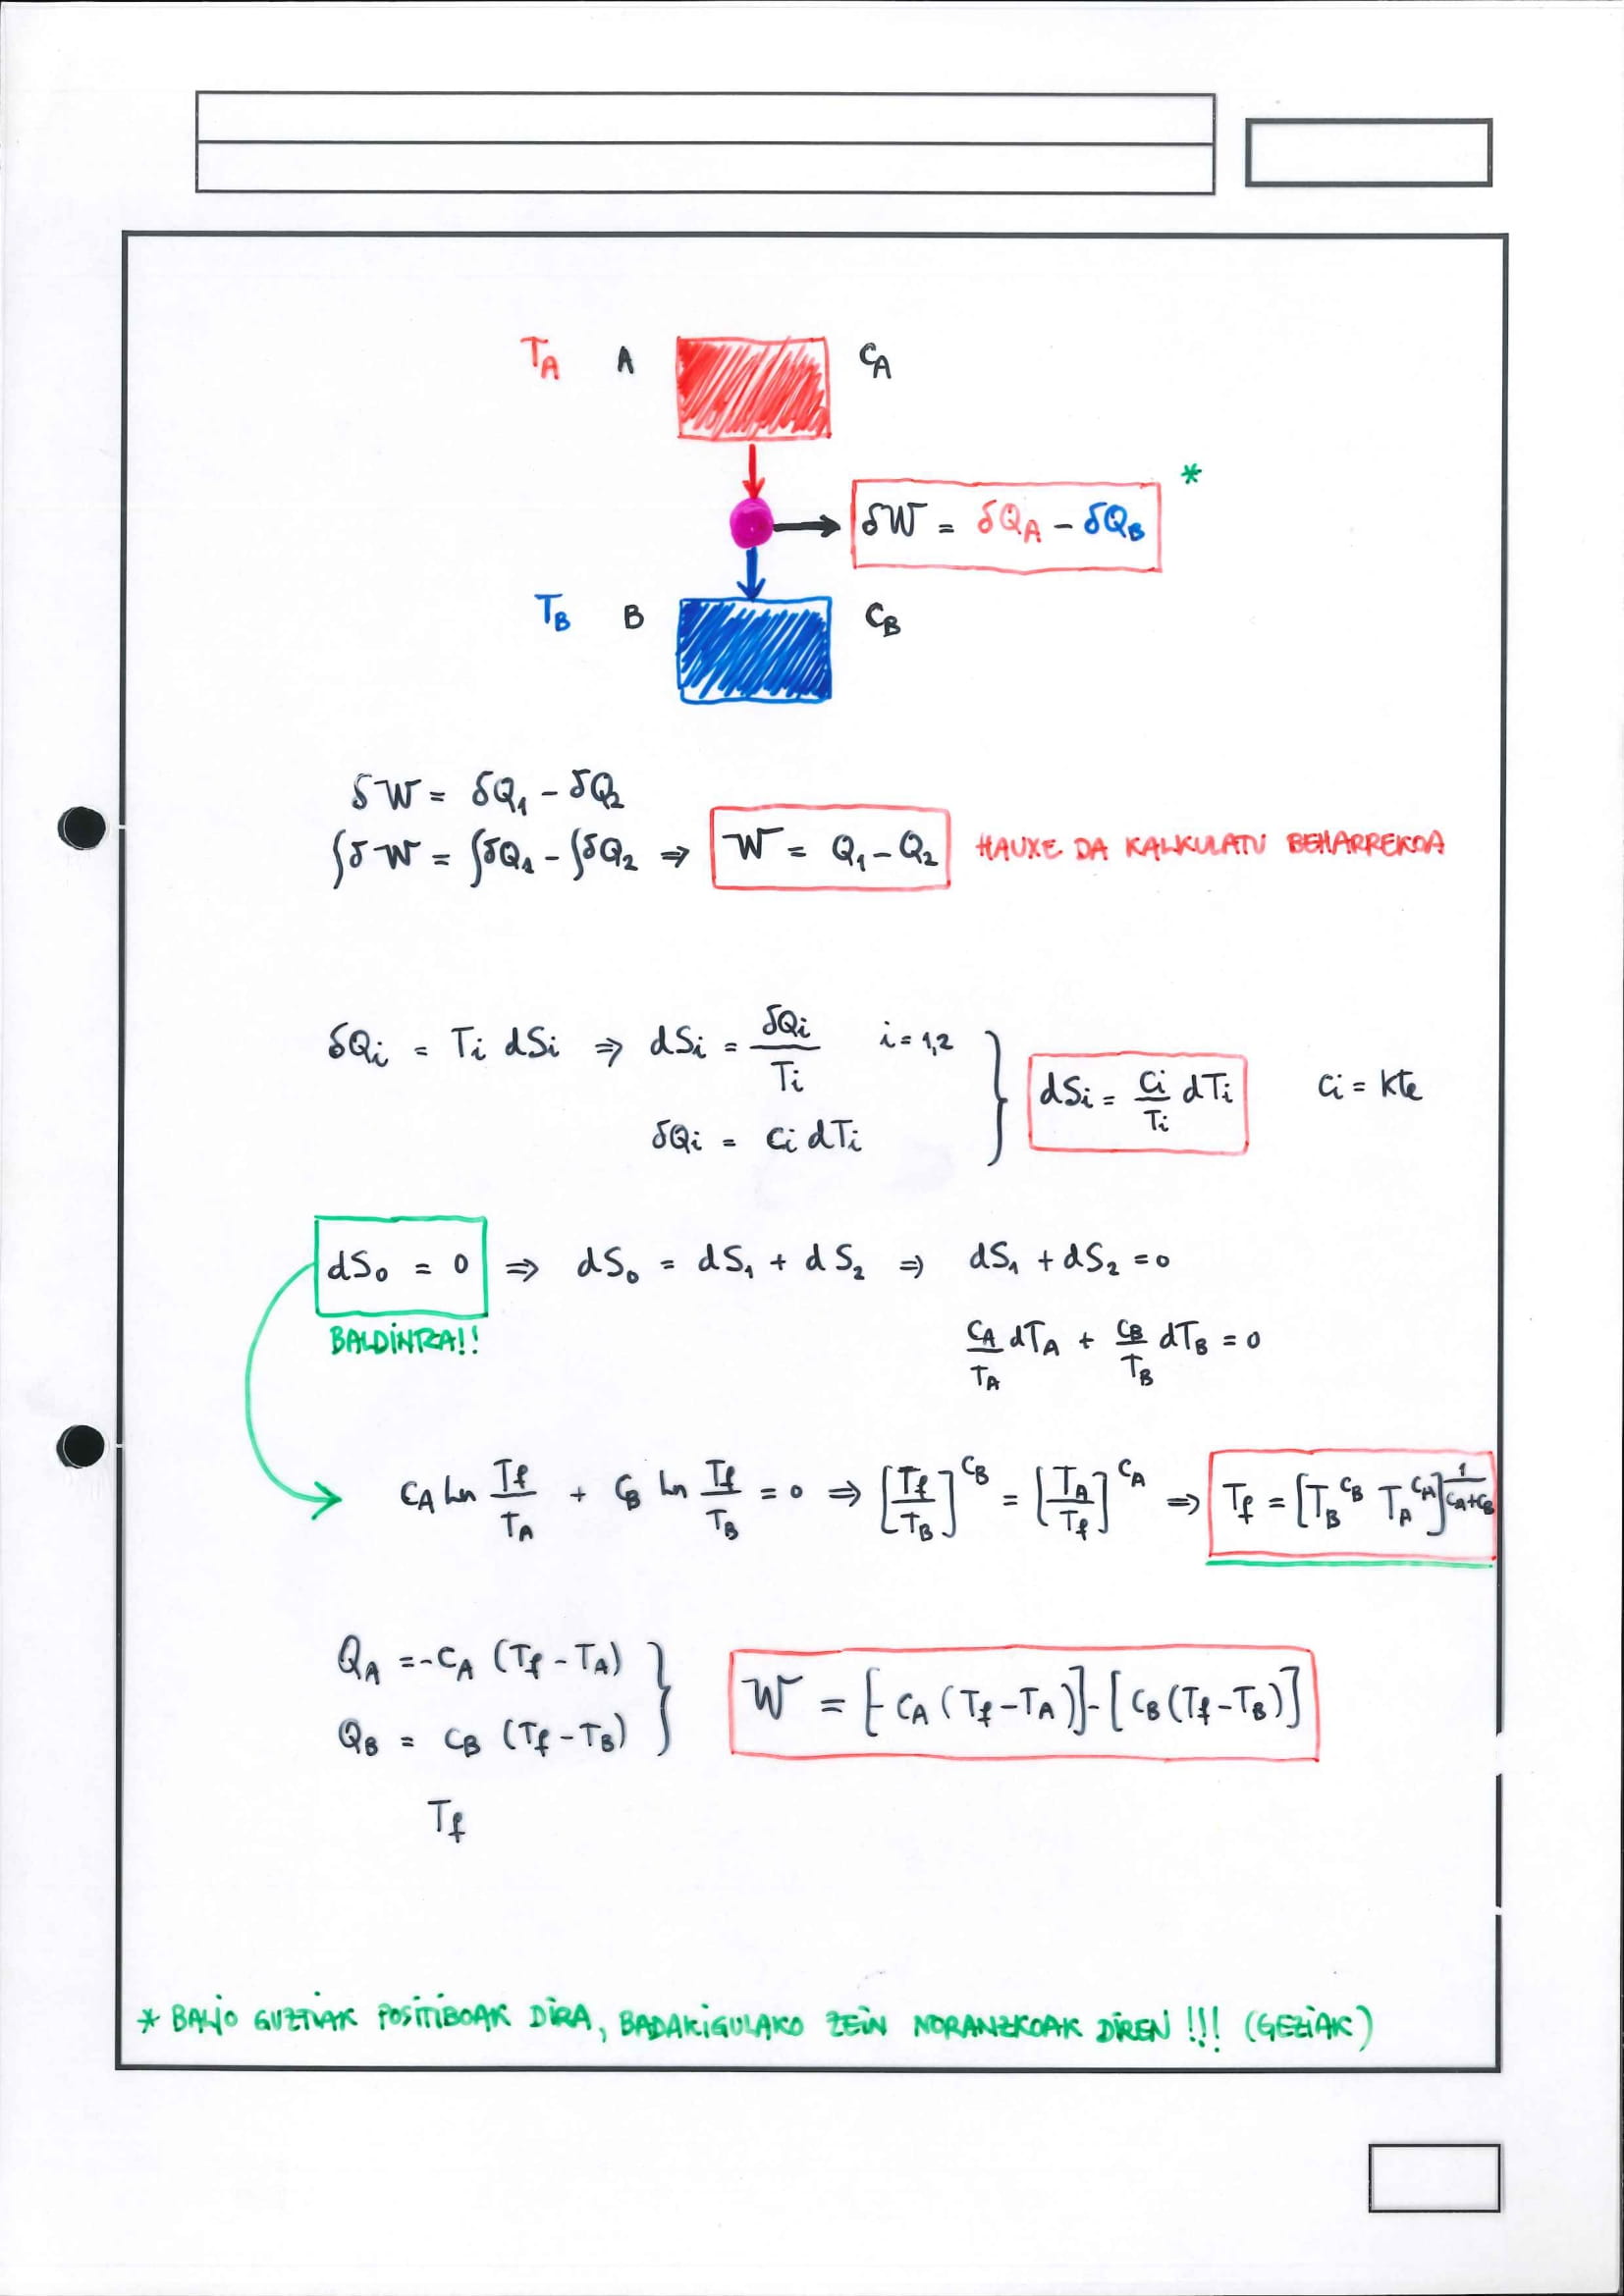 T_A A C_A
*
δW = δQ_A - δQ_B
T_B B C_B
δW = δQ_1 - δQ_2
∫δW = ∫δQ_1 - ∫δQ_2 ⇒ W = Q_1 - Q_2 HAUXE DA KALKULATU BEHARREKOA
δQ_i = T_i dS_i ⇒ dS_i = δQ_i / T_i i = 1,2
δQ_i = C_i dT_i } dS_i = C_i / T_i dT_i C_i = kte
dS_0 = 0 ⇒ dS_0 = dS_1 + dS_2 ⇒ dS_1 + dS_2 = 0
BALDINTZA!!
C_A / T_A dT_A + C_B / T_B dT_B = 0
C_A ln T_f / T_A + C_B ln T_f / T_B = 0 ⇒ [T_f / T_B]^C_B = [T_A / T_f]^C_A ⇒ T_f = [T_B^C_B T_A^C_A]^(1 / C_A+C_B)
Q_A = -C_A (T_f - T_A)
Q_B = C_B (T_f - T_B) } W = [-C_A (T_f - T_A)] - [C_B (T_f - T_B)]
T_f
* BALIO GUZTIAK POSITIBOAK DIRA, BADAKIGULAKO ZEIN NORANZKOAK DIREN !!! (GEZIAK)